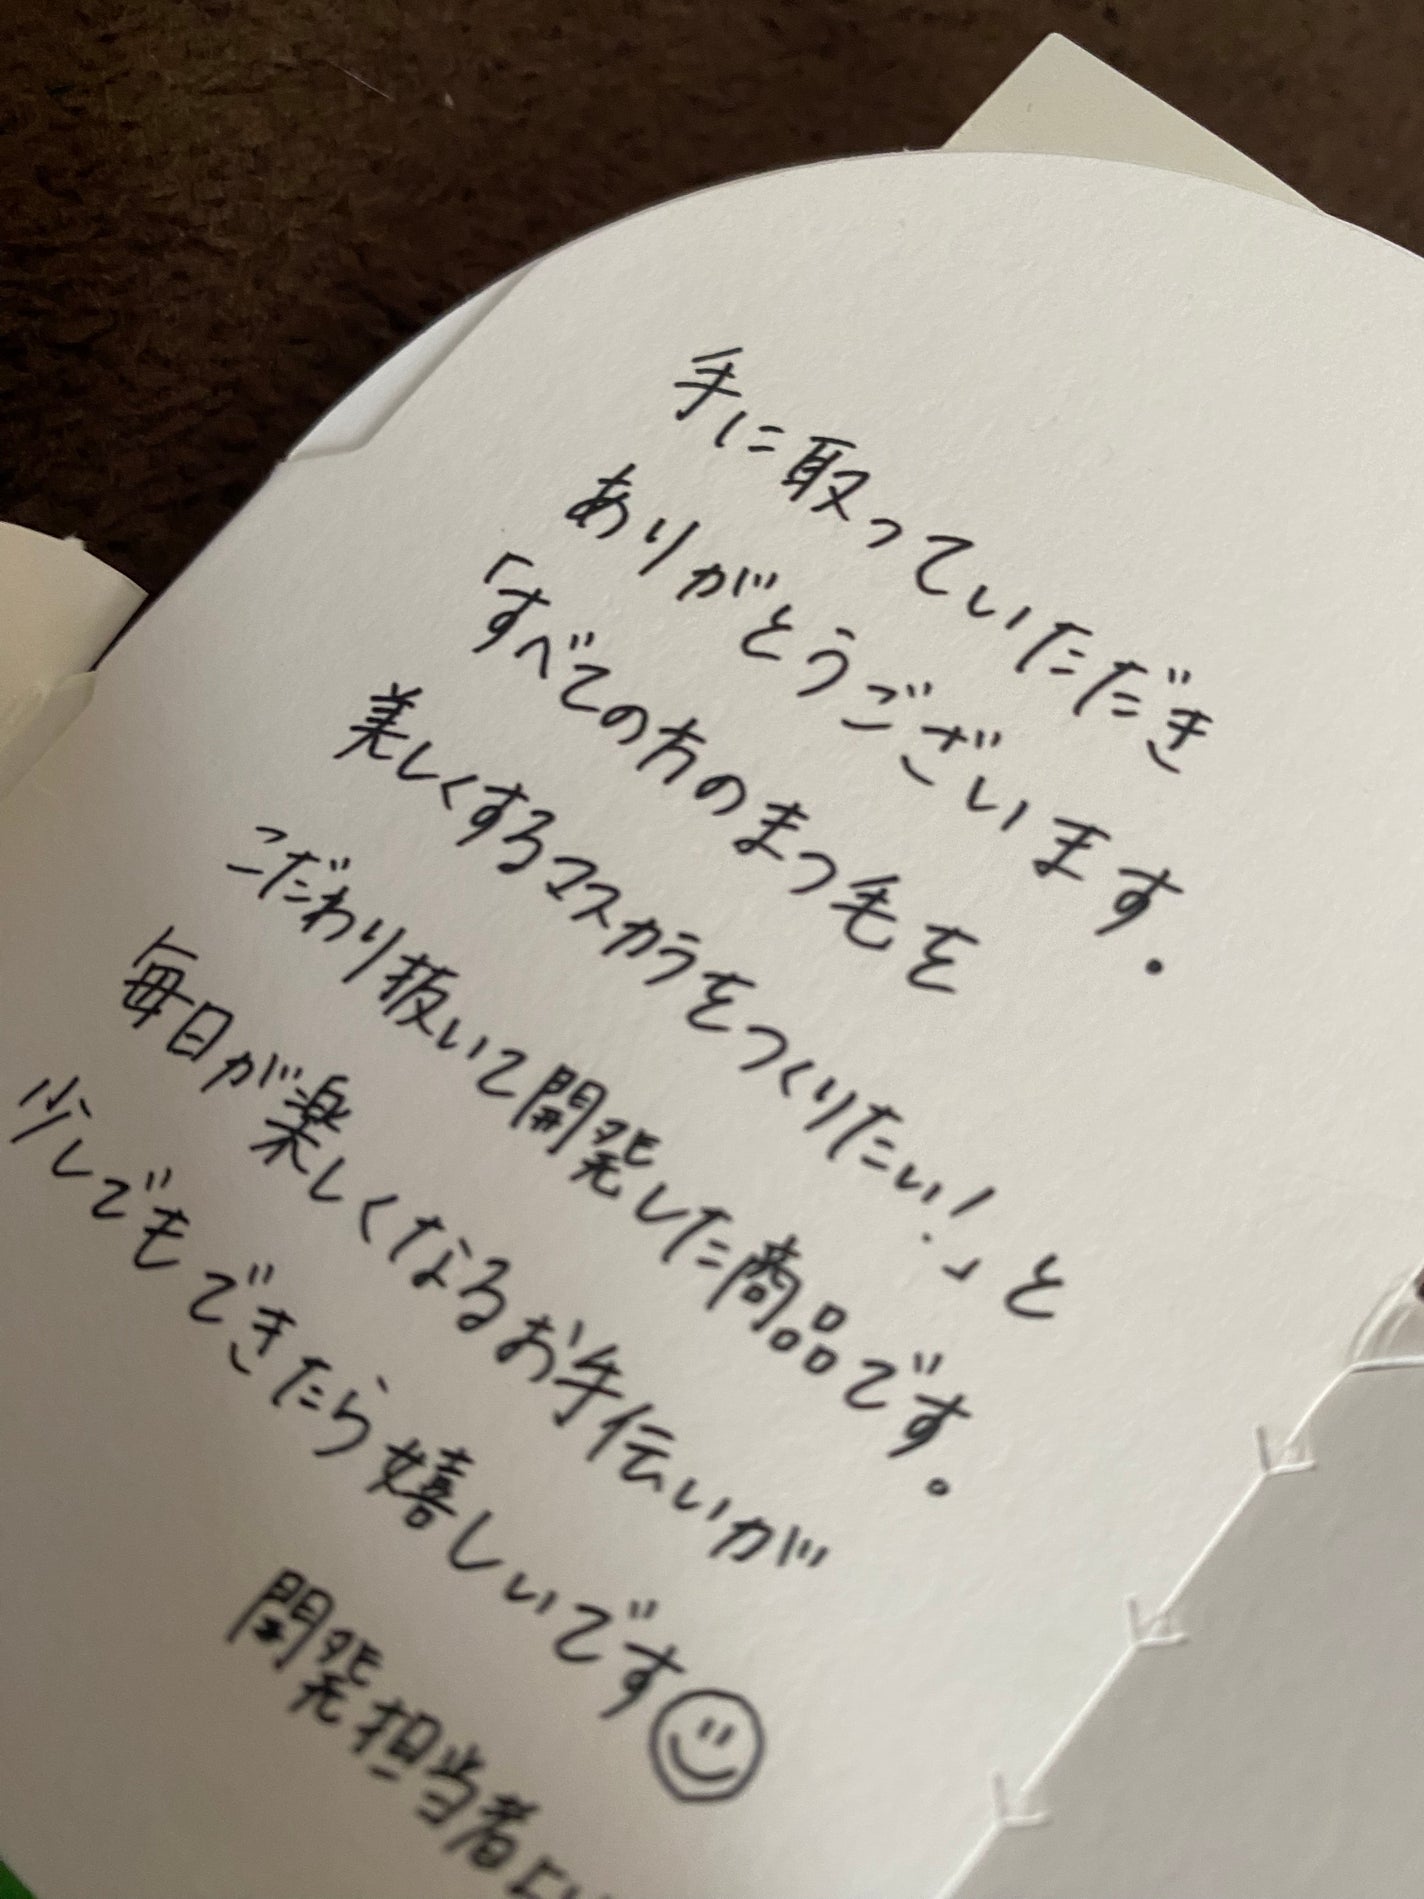 手に取っていただき
ありがとうございます.
「すべての方のまつ毛を
美しくするマスカラをつくりたい!」と
こだわり抜いて開発した商品です。
毎日が楽しくなるお手伝いが
少しでもできたら嬉しいです
開発担当者より